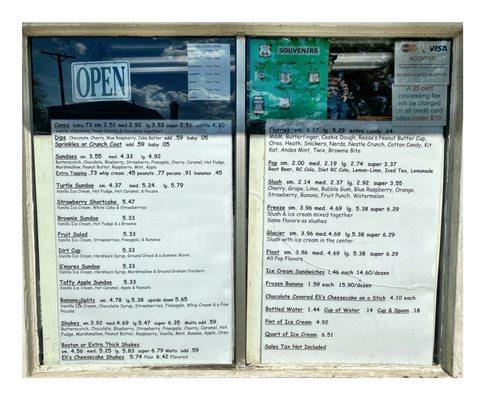 OPEN
Cones baby.73 sm. 2.51 med.2.92 lg. 3.83 super 2.51 waffle 4.10
Vanilla, Chocolate, Twist (Vanilla & Chocolate together)
Dips Chocolate, Cherry, Blue Raspberry, Cake Butter add .59 baby .05
Sprinkles or Crunch Coat add .59 baby .05
Sundaes sm. 3.55 med. 4.33 lg. 4.92
Butterscotch, Chocolate, Blueberry, Strawberry, Pineapple, Cherry, Caramel, Hot Fudge,
Marshmallow, Peanut Butter, Raspberry, Mint, Apple
Extra Topping .73 whip cream .45 peanuts .77 pecans .91 bananas .45
Turtle Sundae sm. 4.37 med. 5.24 lg. 5.79
Vanilla Ice Cream, Hot Fudge, Hot Caramel, & Pecans
Strawberry Shortcake 5.47
Vanilla Ice Cream, White Cake & Strawberries
Brownie Sundae 5.33
Vanilla Ice Cream, Hot Fudge & a Brownie
Fruit Salad 5.33
Vanilla Ice Cream, Strawberries, Pineapple, & Bananas
Dirt Cup 5.33
Vanilla Ice Cream, Hershey's Syrup, Ground Oreos & a Gummie Worm
S'mores Sundae 5.33
Vanilla Ice Cream, Hershey's Syrup, Marshmallow & Ground Graham Crackers
Taffy Apple Sundae 5.33
Vanilla Ice Cream, Hot Caramel, Apple & Peanuts
Banana Splits sm. 4.78 lg 5.38 upside down 5.65
Vanilla Ice Cream, Chocolate Syrup, Strawberries, Pineapple, Whip Cream & a Few
Pecans
Shakes sm 3.92 med. 4.69 lg 5.47 super 6.35 Malts add .59
Butterscotch, Chocolate, Blueberry, Strawberry, Pineapple, Cherry, Caramel, Hot
Fudge, Marshmallow, Peanut Butter, Raspberry, Vanilla, Mint, Banana, Apple
Boston or Extra Thick Shakes
sm. 4.56 med. 5.25 lg 5.83 super 6.79 Malts add .59
Eli's Cheesecake Shakes 5.74 Plain 6.42 Flavored
SOUVENIRS
MasterCard VISA
ACCEPTED
A 35 cent
processing fee
will be charged
on all credit card
sales under $10
Flurries sm. 4.37 lg. 5.29 extra candy .64
M&M, Butterfinger, Cookie Dough, Reese's Peanut Butter Cup,
Oreo, Heath, Snickers, Nerds, Nestle Crunch, Cotton Candy, Kit
Kat, Andes Mint, Twix, Brownie Bite
Pop sm. 2.00 med. 2.19 lg. 2.74 super 3.37
Root Beer, RC Cola, Diet RC Cola, Lemon-Lime, Iced Tea, Lemonade
Slush sm. 2.14 med. 2.37 lg. 2.92 super 3.55
Cherry, Grape, Lime, Bubble Gum, Blue Raspberry, Orange,
Strawberry, Banana, Fruit Punch, Watermelon
Freeze sm. 3.96 med. 4.69 lg. 5.38 super 6.29
Slush & ice cream mixed together
Same flavors as slushes
Glacier sm. 3.96 med. 4.69 lg.5.38 super 6.29
Slush with ice cream in the center
Float sm. 3.96 med. 4.69 lg. 5.38 super 6.29
All Pop Flavors
Ice Cream Sandwiches 1.46 each 14.60/dozen
Frozen Banana 1.59 each 15.90/dozen
Chocolate Covered Eli's Cheesecake on a Stick 4.10 each
Bottled Water 1.44 Cup of Water .14 Cup & Spoon .18
Pint of Ice Cream 4.92
Quart of Ice Cream 6.51
Sales Tax Not Included